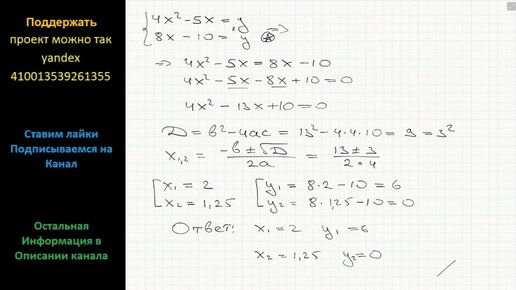 Поддержать
проект можно так
yandex
410013539261355
Ставим лайки
Подписываемся на
Канал
Остальная
Информация в
Описании канала
{4x²-5x=y
8x-10=y ⊛ ⇒
⇒ 4x²-5x=8x-10
4x²-5x-8x+10=0
4x²-13x+10=0
D=b²-4ac=13²-4·4·10=9=3²
x₁,₂=(-b±√D)/2a=(13±3)/2·4
[x₁=2 [y₁=8·2-10=6
x₂=1,25 y₂=8·1,25-10=0
Ответ: x₁=2 y₁=6
x₂=1,25 y₂=0